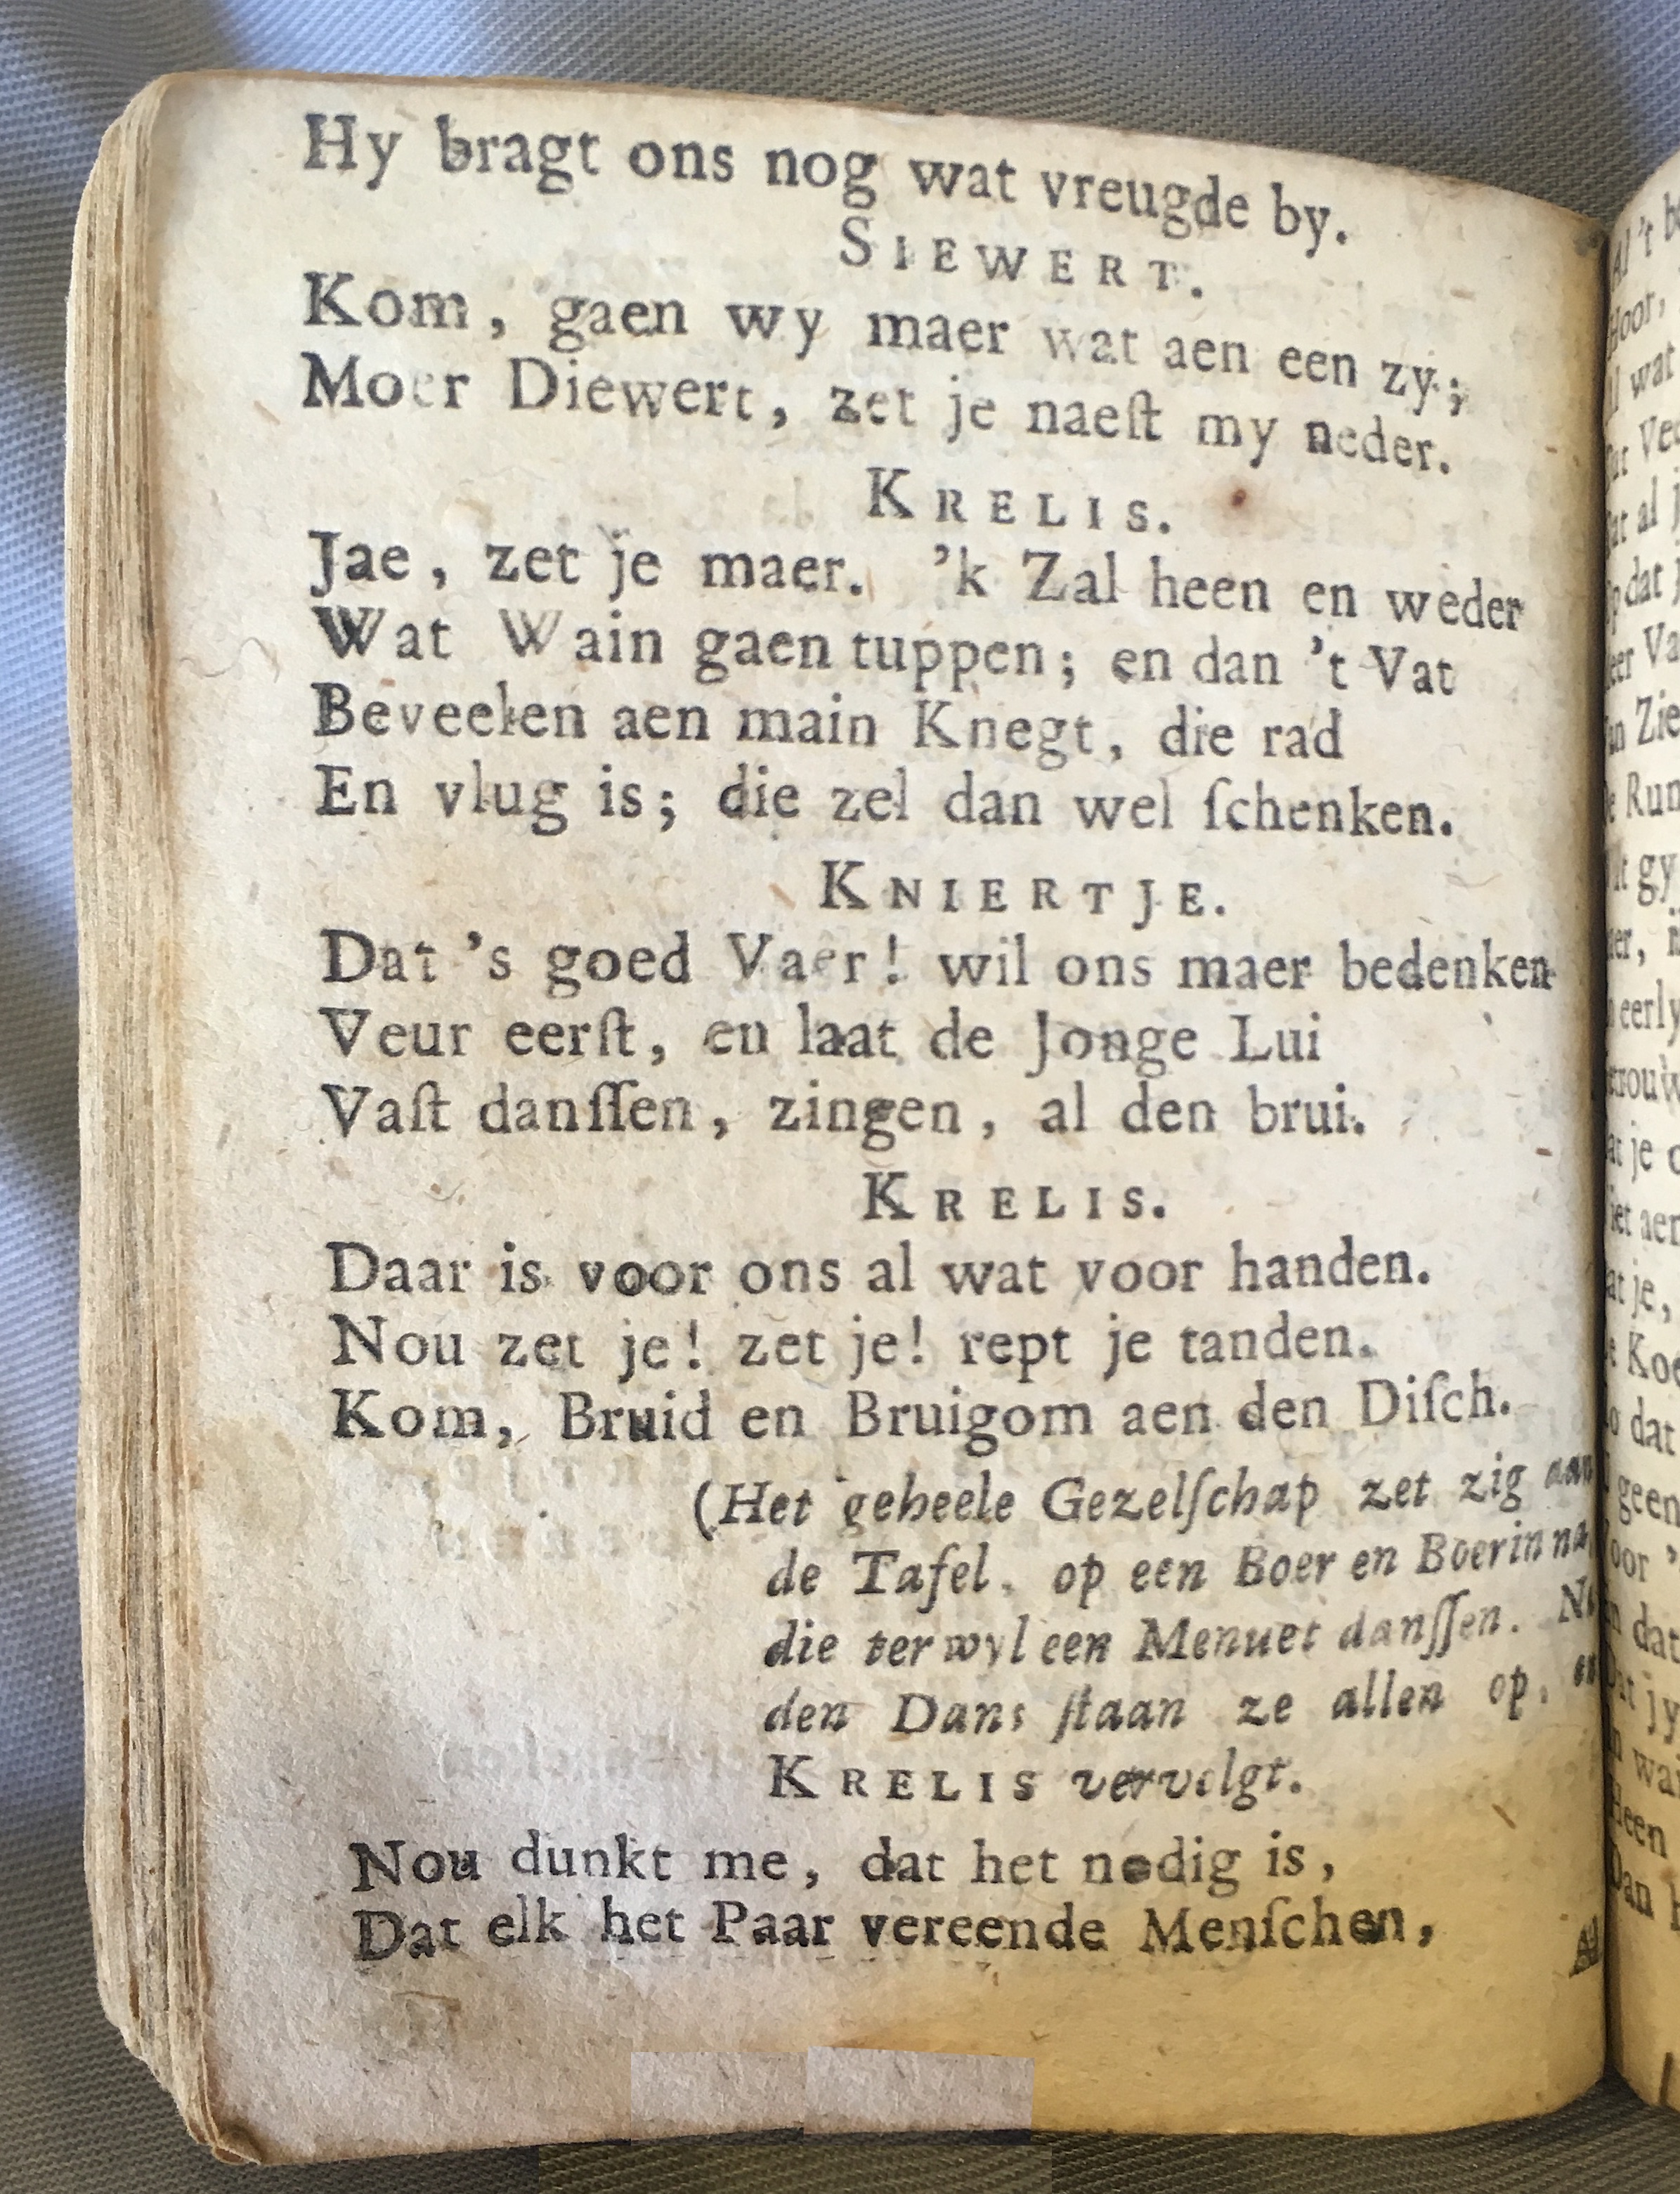 Hy bragt ons nog wat vreugde by.
SIEWERT.
Kom, gaen wy maer wat aen een zy;
Moer Diewert, zet je naeſt my neder.
KRELIS.
Jae, zet je maer. 'k Zal heen en weder
Wat Wain gaen tuppen; en dan 't Vat
Beveelen aen main Knegt, die rad
En vlug is; die zel dan wel ſchenken.
KNIERTJE.
Dat 's goed Vaer! wil ons maer bedenken
Veur eerſt, en laat de Jonge Lui
Vaſt danſſen, zingen, al den brui.
KRELIS.
Daar is voor ons al wat voor handen.
Nou zet je! zet je! rept je tanden.
Kom, Bruid en Bruigom aen den Diſch.
(Het geheele Gezelſchap zet zig aan
de Tafel, op een Boer en Boerin na,
die terwyl een Menuet danſſen. Na
den Dans ſtaan ze allen op, en
KRELIS vervolgt.
Nou dunkt me, dat het nodig is,
Dat elk het Paar vereende Menſchen,
Al 't
Hoor,
wat
Vat
al
dat
Zie
gy
eerly
je
aen
je,
dat
geen
dat
jy
Heen
Dan